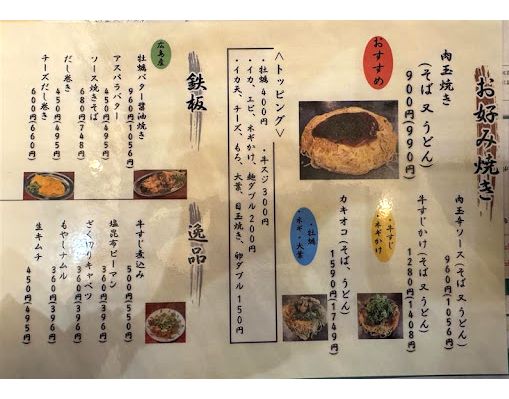 お好み焼き
おすすめ
肉玉焼き
(そば 又 うどん)
900円(990円)
肉玉辛ソース(そば 又 うどん)
960円(1056円)
・牛すじ
・ネギかけ
牛すじかけ(そば 又 うどん)
1280円(1408円)
・牡蠣
・ネギ・大葉
カキオコ(そば、うどん)
1590円(1749円)
<トッピング>
・牡蠣 400円 ・牛スジ 300円
・イカ、エビ、ネギかけ、麺ダブル 200円
・イカ天、チーズ、もち、大葉、目玉焼き、卵ダブル 150円
鉄板
広島産
牡蠣バター醤油焼き
960円(1056円)
アスパラバター
450円(495円)
ソース焼きそば
680円(748円)
だし巻き
450円(495円)
チーズだし巻き
600円(660円)
逸品
牛すじ煮込み
500円(550円)
塩昆布ピーマン
360円(396円)
ざく切りキャベツ
360円(396円)
もやしナムル
360円(396円)
生キムチ
450円(495円)